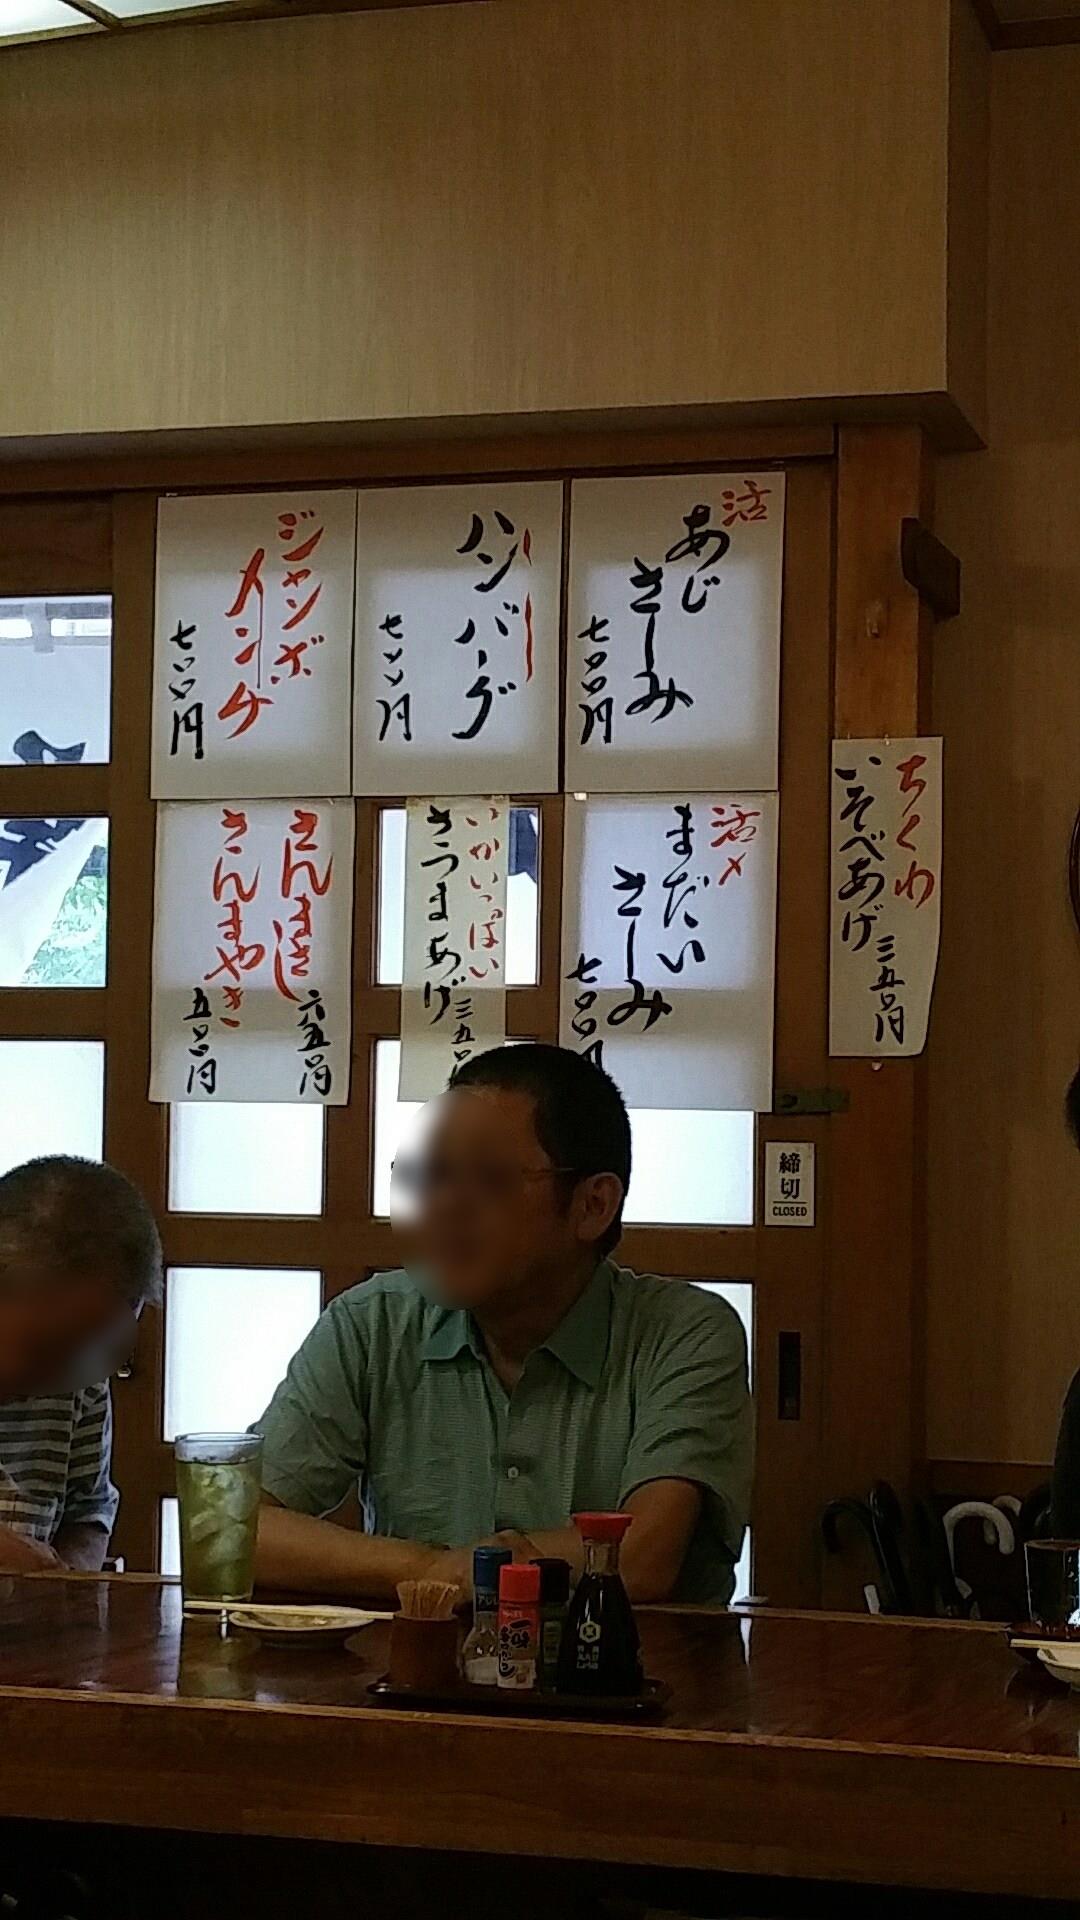 活
あじ
さしみ
七〇〇円
ハンバーグ
七〇〇円
ジャンボ
メンチ
七〇〇円
ちくわ
いそべあげ
三五〇円
活〆
まだい
さしみ
七〇〇円
いかいっぱい
さつまあげ
三五〇
さんまさし
六五〇円
さんまやき
五〇〇円
締切
CLOSED
一味